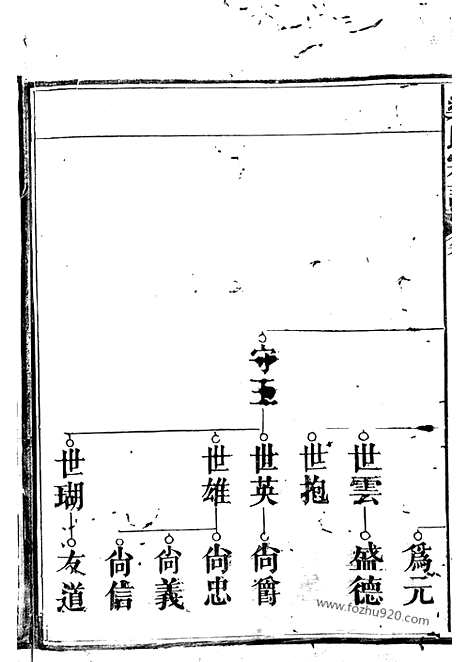 守玉
世雲
世抱
世英
世雄
世瑚
為元
盛德
尚爵
尚忠
尚義
尚信
友道
www.fozhu920.com